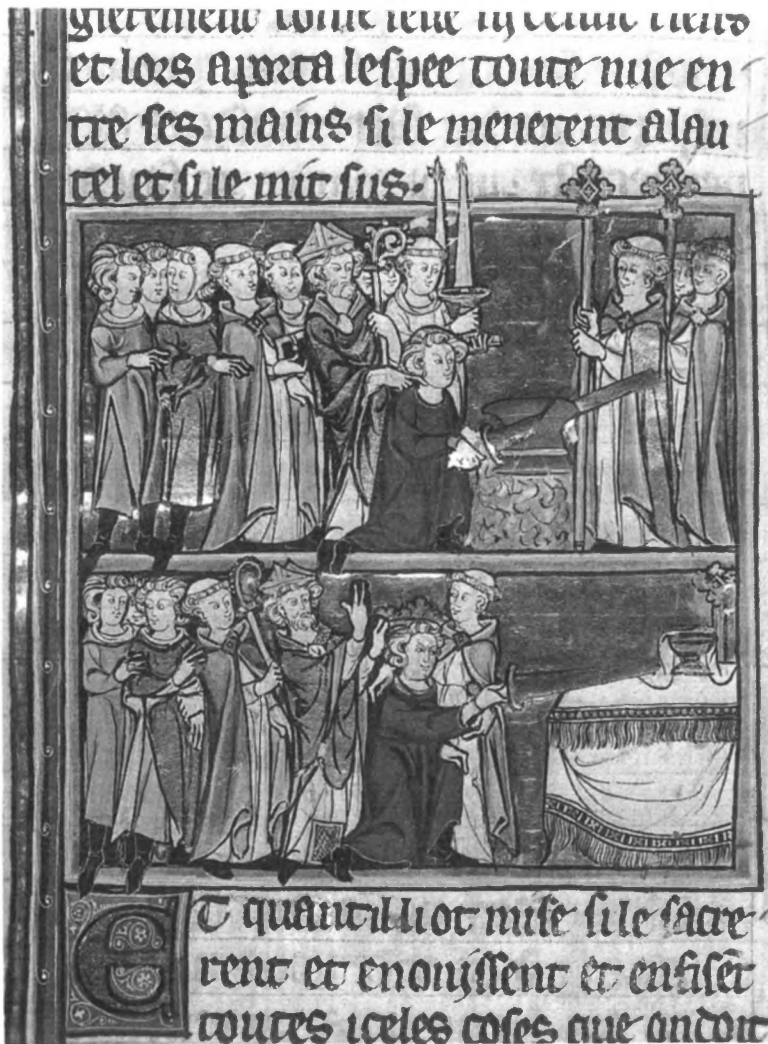 et lors aporta lespee toute nue en
tre ses mains si le menerent alau
tel et si le mit sus.
ET quant il li ot mise si le sacre
rent et enoinssent et enfisēt
toutes iceles coses que on doit